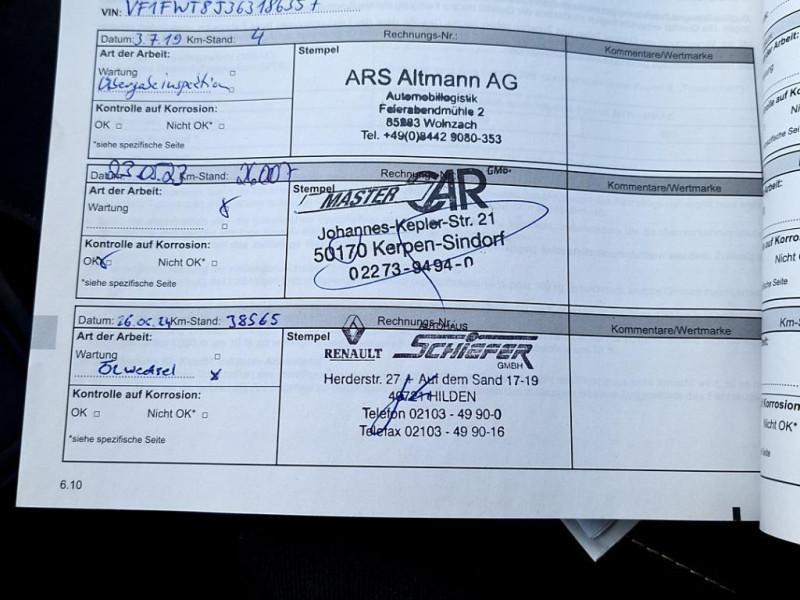 VIN: VF1FWT8J
Datum: 3.7.19 Km-Stand: 4 Rechnungs-Nr.:
Art der Arbeit:
Wartung
Übergabeinspektion
Kontrolle auf Korrosion:
OK Nicht OK*
*siehe spezifische Seite
Stempel
ARS Altmann AG
Automobillogistik
Feierabendmühle 2
85283 Wolnzach
Tel. +49(0)8442 9080-353
Kommentare/Wertmarke
Km-Stand: 26.007
Art der Arbeit:
Wartung
Kontrolle auf Korrosion:
OK Nicht OK*
*siehe spezifische Seite
Stempel
MASTER CAR GMBH
Johannes-Kepler-Str. 21
50170 Kerpen-Sindorf
02273-9494-0
Kommentare/Wertmarke
Datum: Km-Stand: 38565 Rechnungs-Nr.:
Art der Arbeit:
Wartung
Ölwechsel x
Kontrolle auf Korrosion:
OK Nicht OK*
*siehe spezifische Seite
Stempel
AUTOHAUS
RENAULT SCHIEFER
GMBH
Herderstr. 27 + Auf dem Sand 17-19
HILDEN
Telefon 02103 - 49 90-0
Telefax 02103 - 49 90-16
Kommentare/Wertmarke
6.10